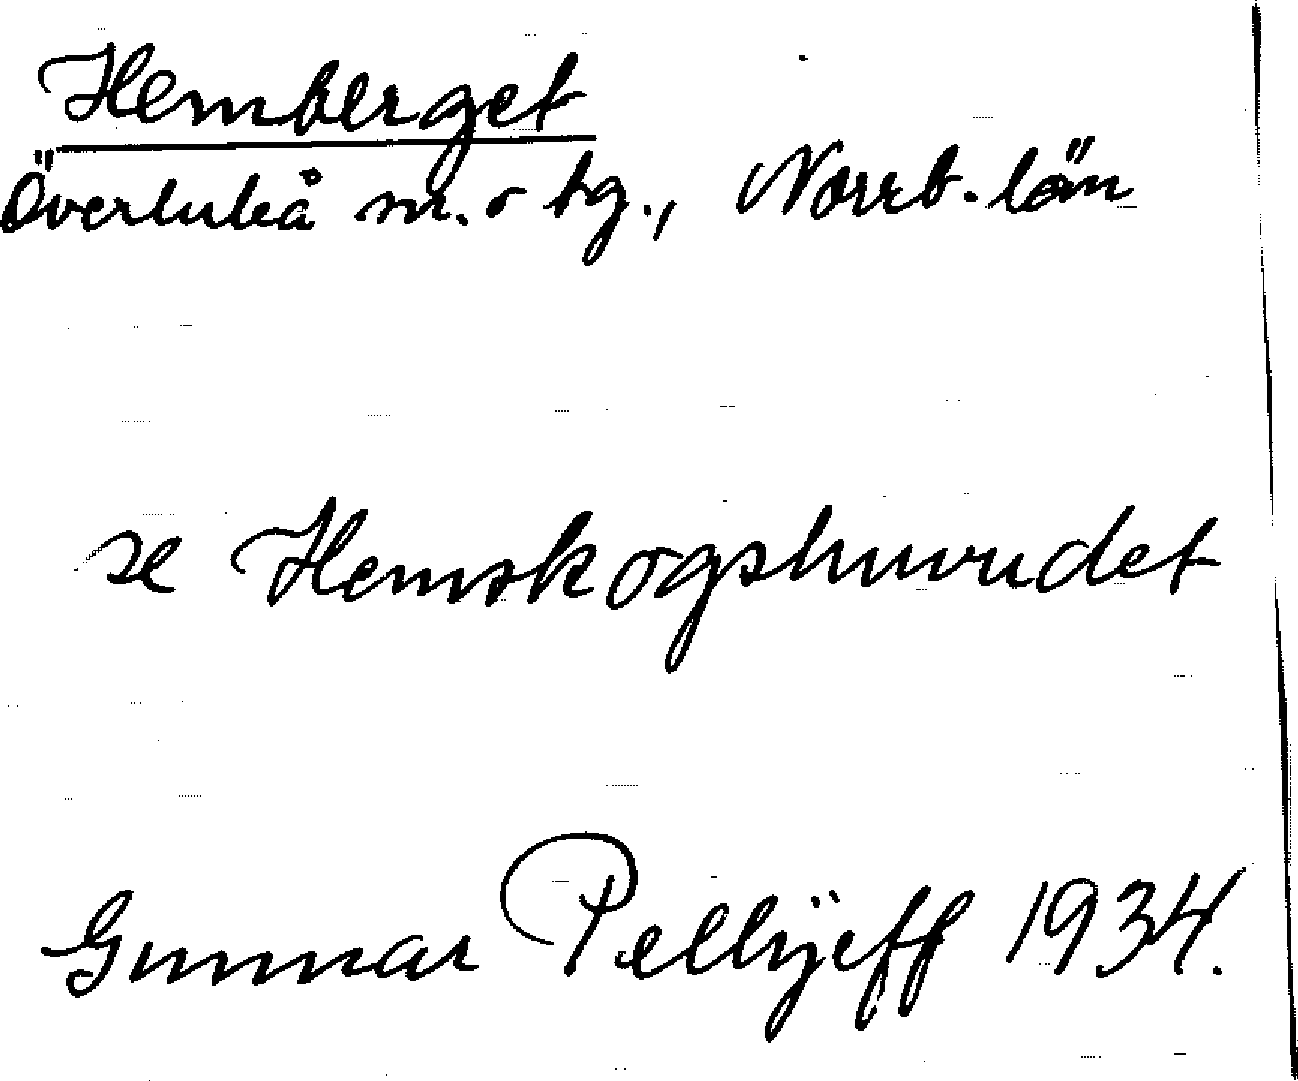 Hemberget
Överluleå sn. o tg., Norrb. län
se Hemskogshuvudet
Gunnar Pellijeff 1934.